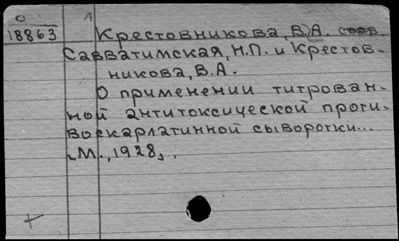 0
18863
1
Крестовникова, В.А. соав
Савватимская, Н.П. и Крестов-
никова, В.А.
О применении титрован-
ной антитоксической проти-
воскарлатинной сыворотки...
М., 1928, .